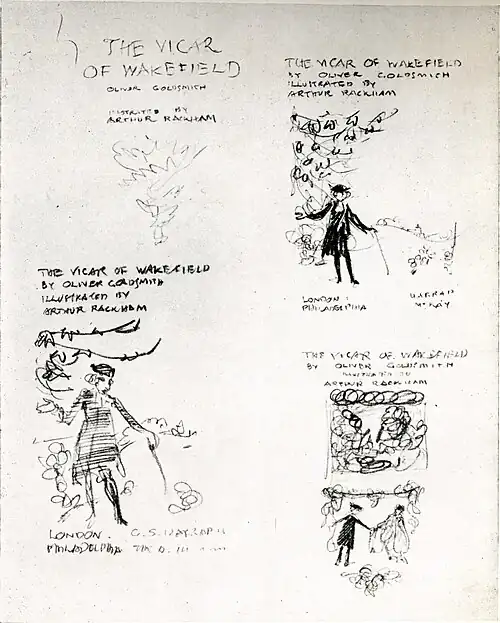 THE VICAR
OF WAKEFIELD
OLIVER GOLDSMITH
ILLUSTRATED BY
ARTHUR RACKHAM
THE VICAR OF WAKEFIELD
BY OLIVER GOLDSMITH
ILLUSTRATED BY
ARTHUR RACKHAM
LONDON:
PHILADELPHIA McKAY
THE VICAR OF WAKEFIELD
BY OLIVER GOLDSMITH
ILLUSTRATED BY
ARTHUR RACKHAM
LONDON.
PHILADELPHIA
THE VICAR OF WAKEFIELD
BY OLIVER GOLDSMITH
ARTHUR RACKHAM